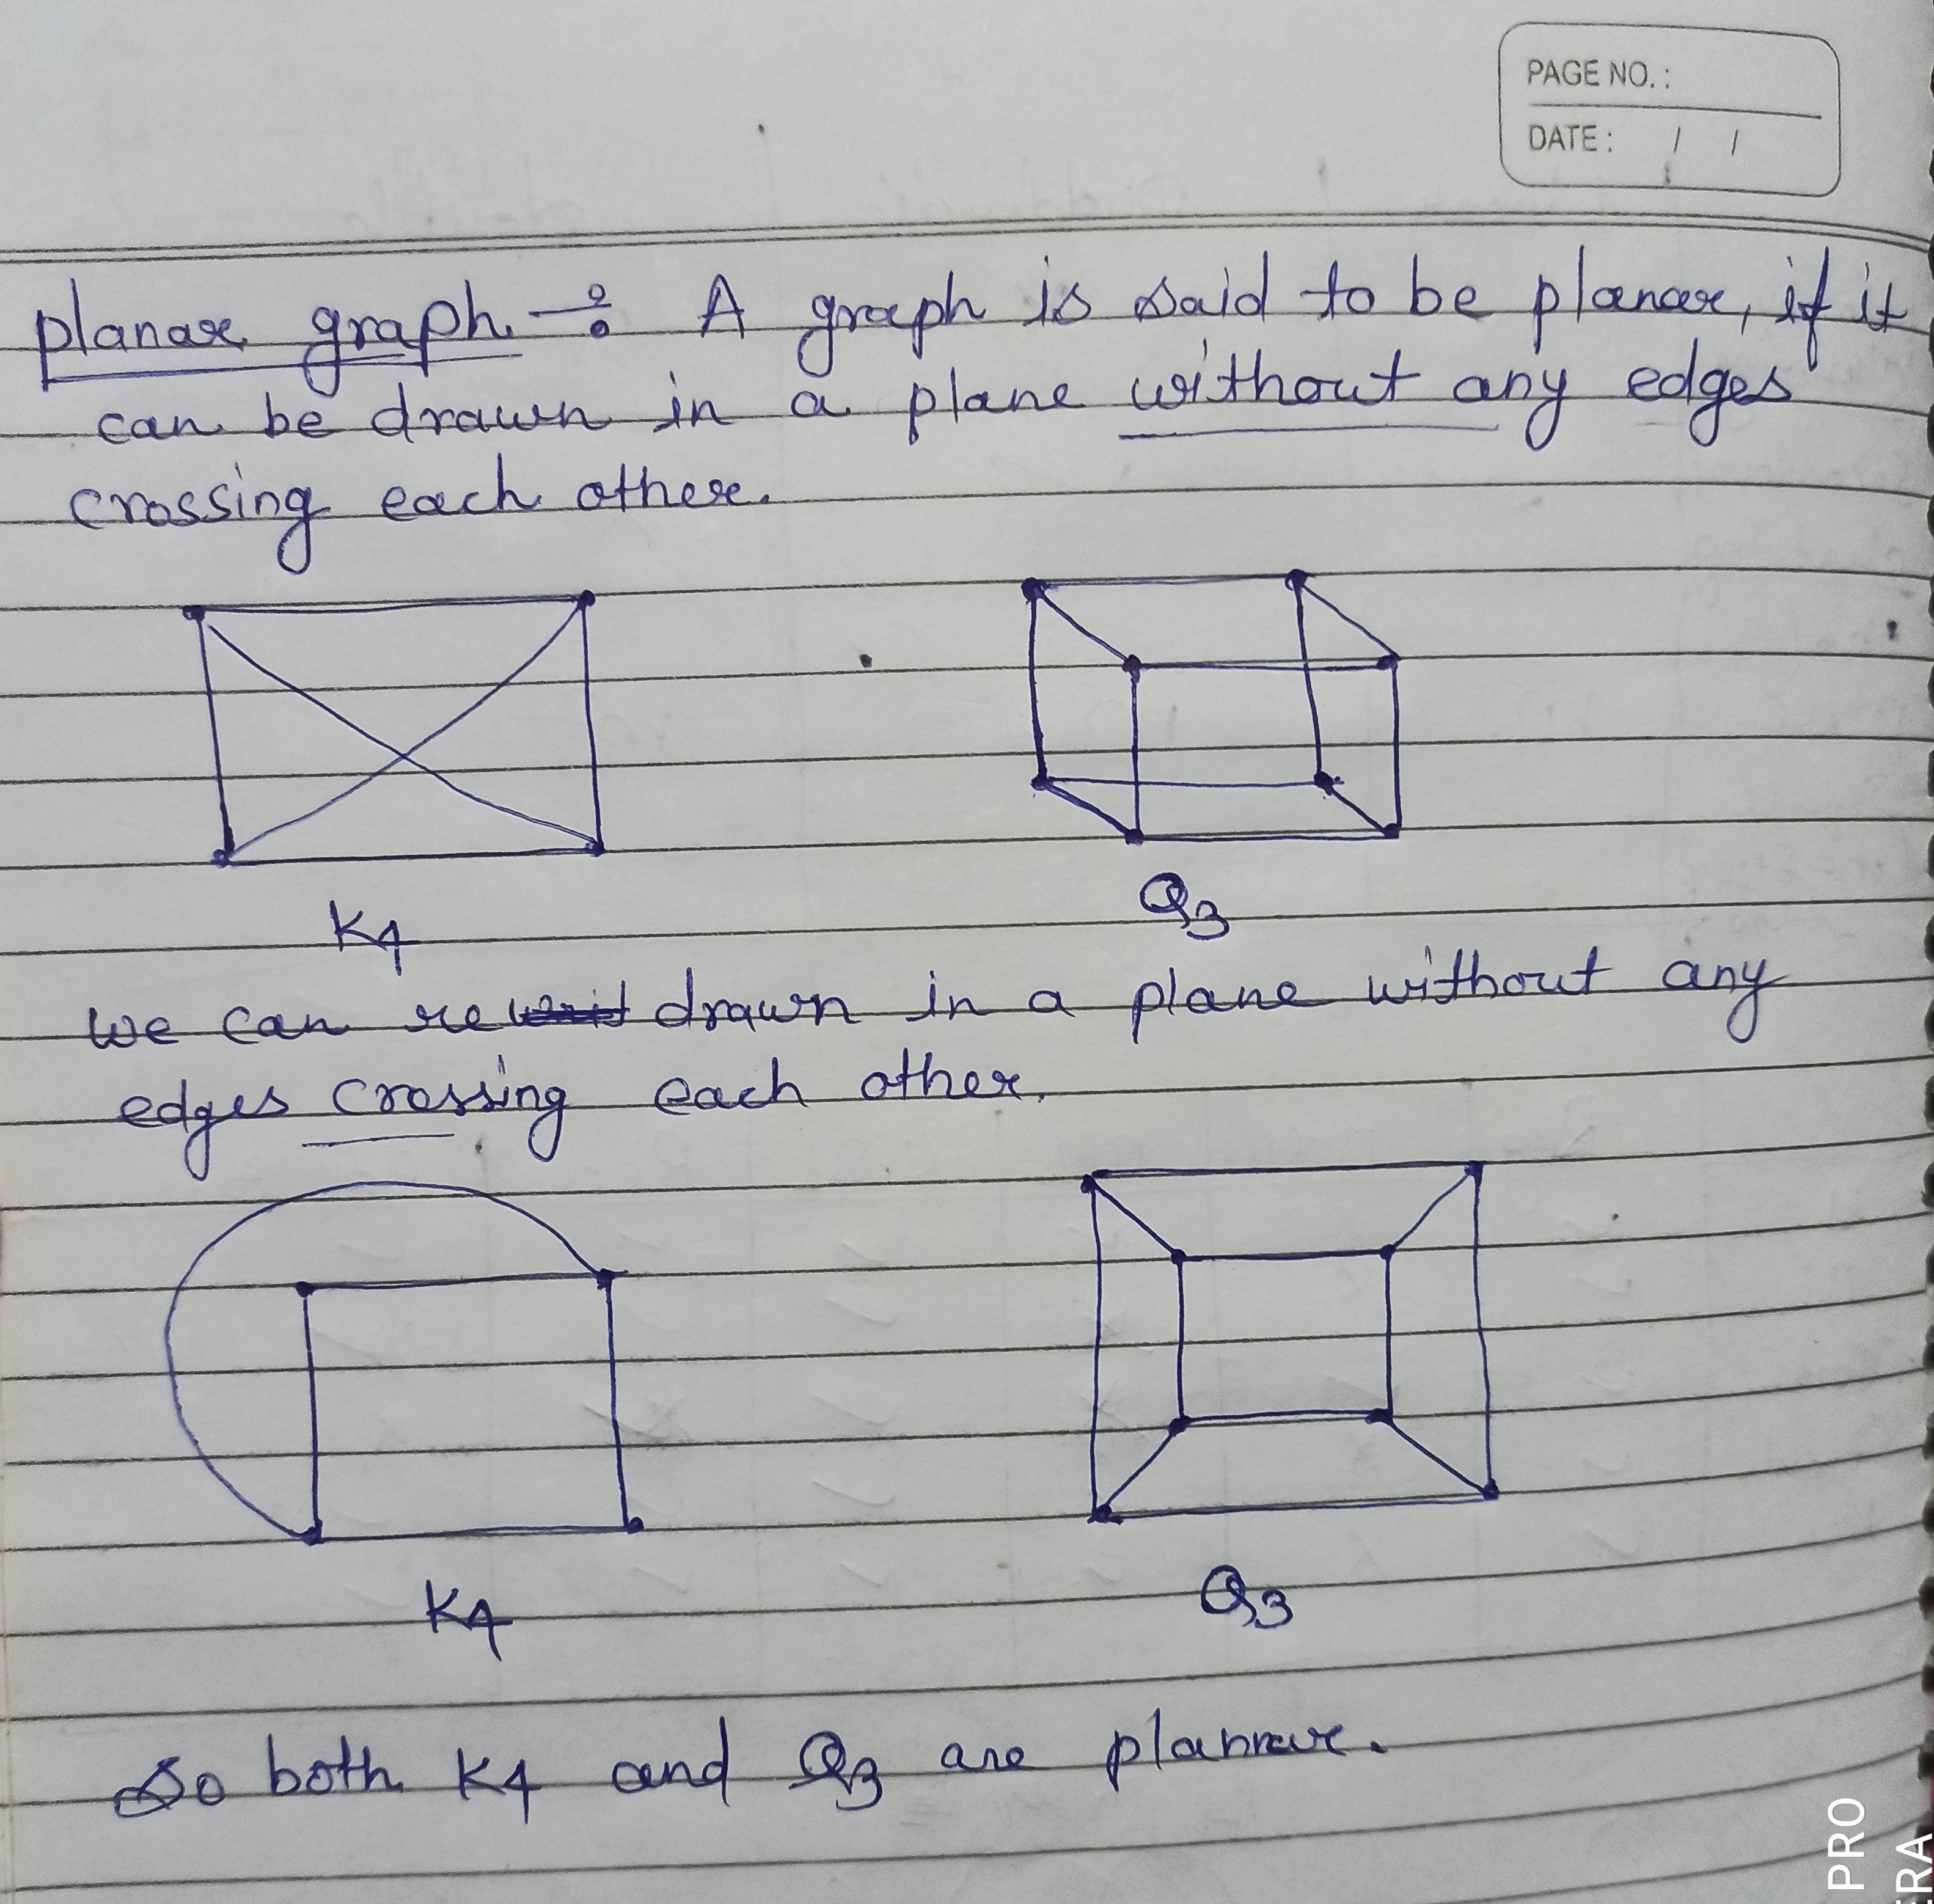 PAGE NO.:
DATE: / /
planar graph -: A graph is said to be planar, if it
can be drawn in a plane without any edges
crossing each other.
K4
Q3
we can re drawn in a plane without any
edges crossing each other.
K4
Q3
So both K4 and Q3 are planar.
PRO
ERA